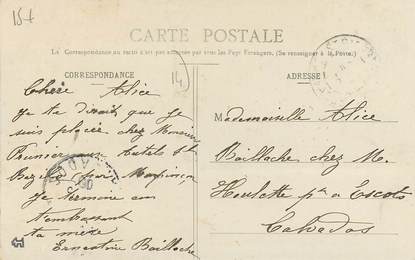 15+
CARTE POSTALE
La Correspondance au recto n'est pas acceptée par tous les Pays Étrangers. (Se renseigner à la Poste.)
CORRESPONDANCE
14
Chère Alice
Je te dirait que je
suis placer chez Monsieur
Basile
Je termine en
t'embrassant
ta mère
Ernestine Baillache
ADRESSE
Mademoiselle Alice
Baillache chez M.
Houlette à Escots
Calvados